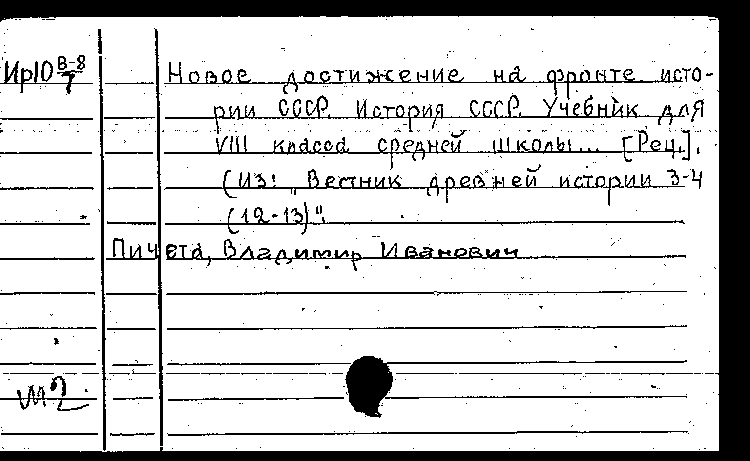 Ир10 В-8/7 Новое достижение на фронте исто-
рии СССР. История СССР. Учебник для
VIII класса средней школы... [Рец.].
(Из: "Вестник древней истории 3-4
(12-13)".
Пичета, Владимир Иванович